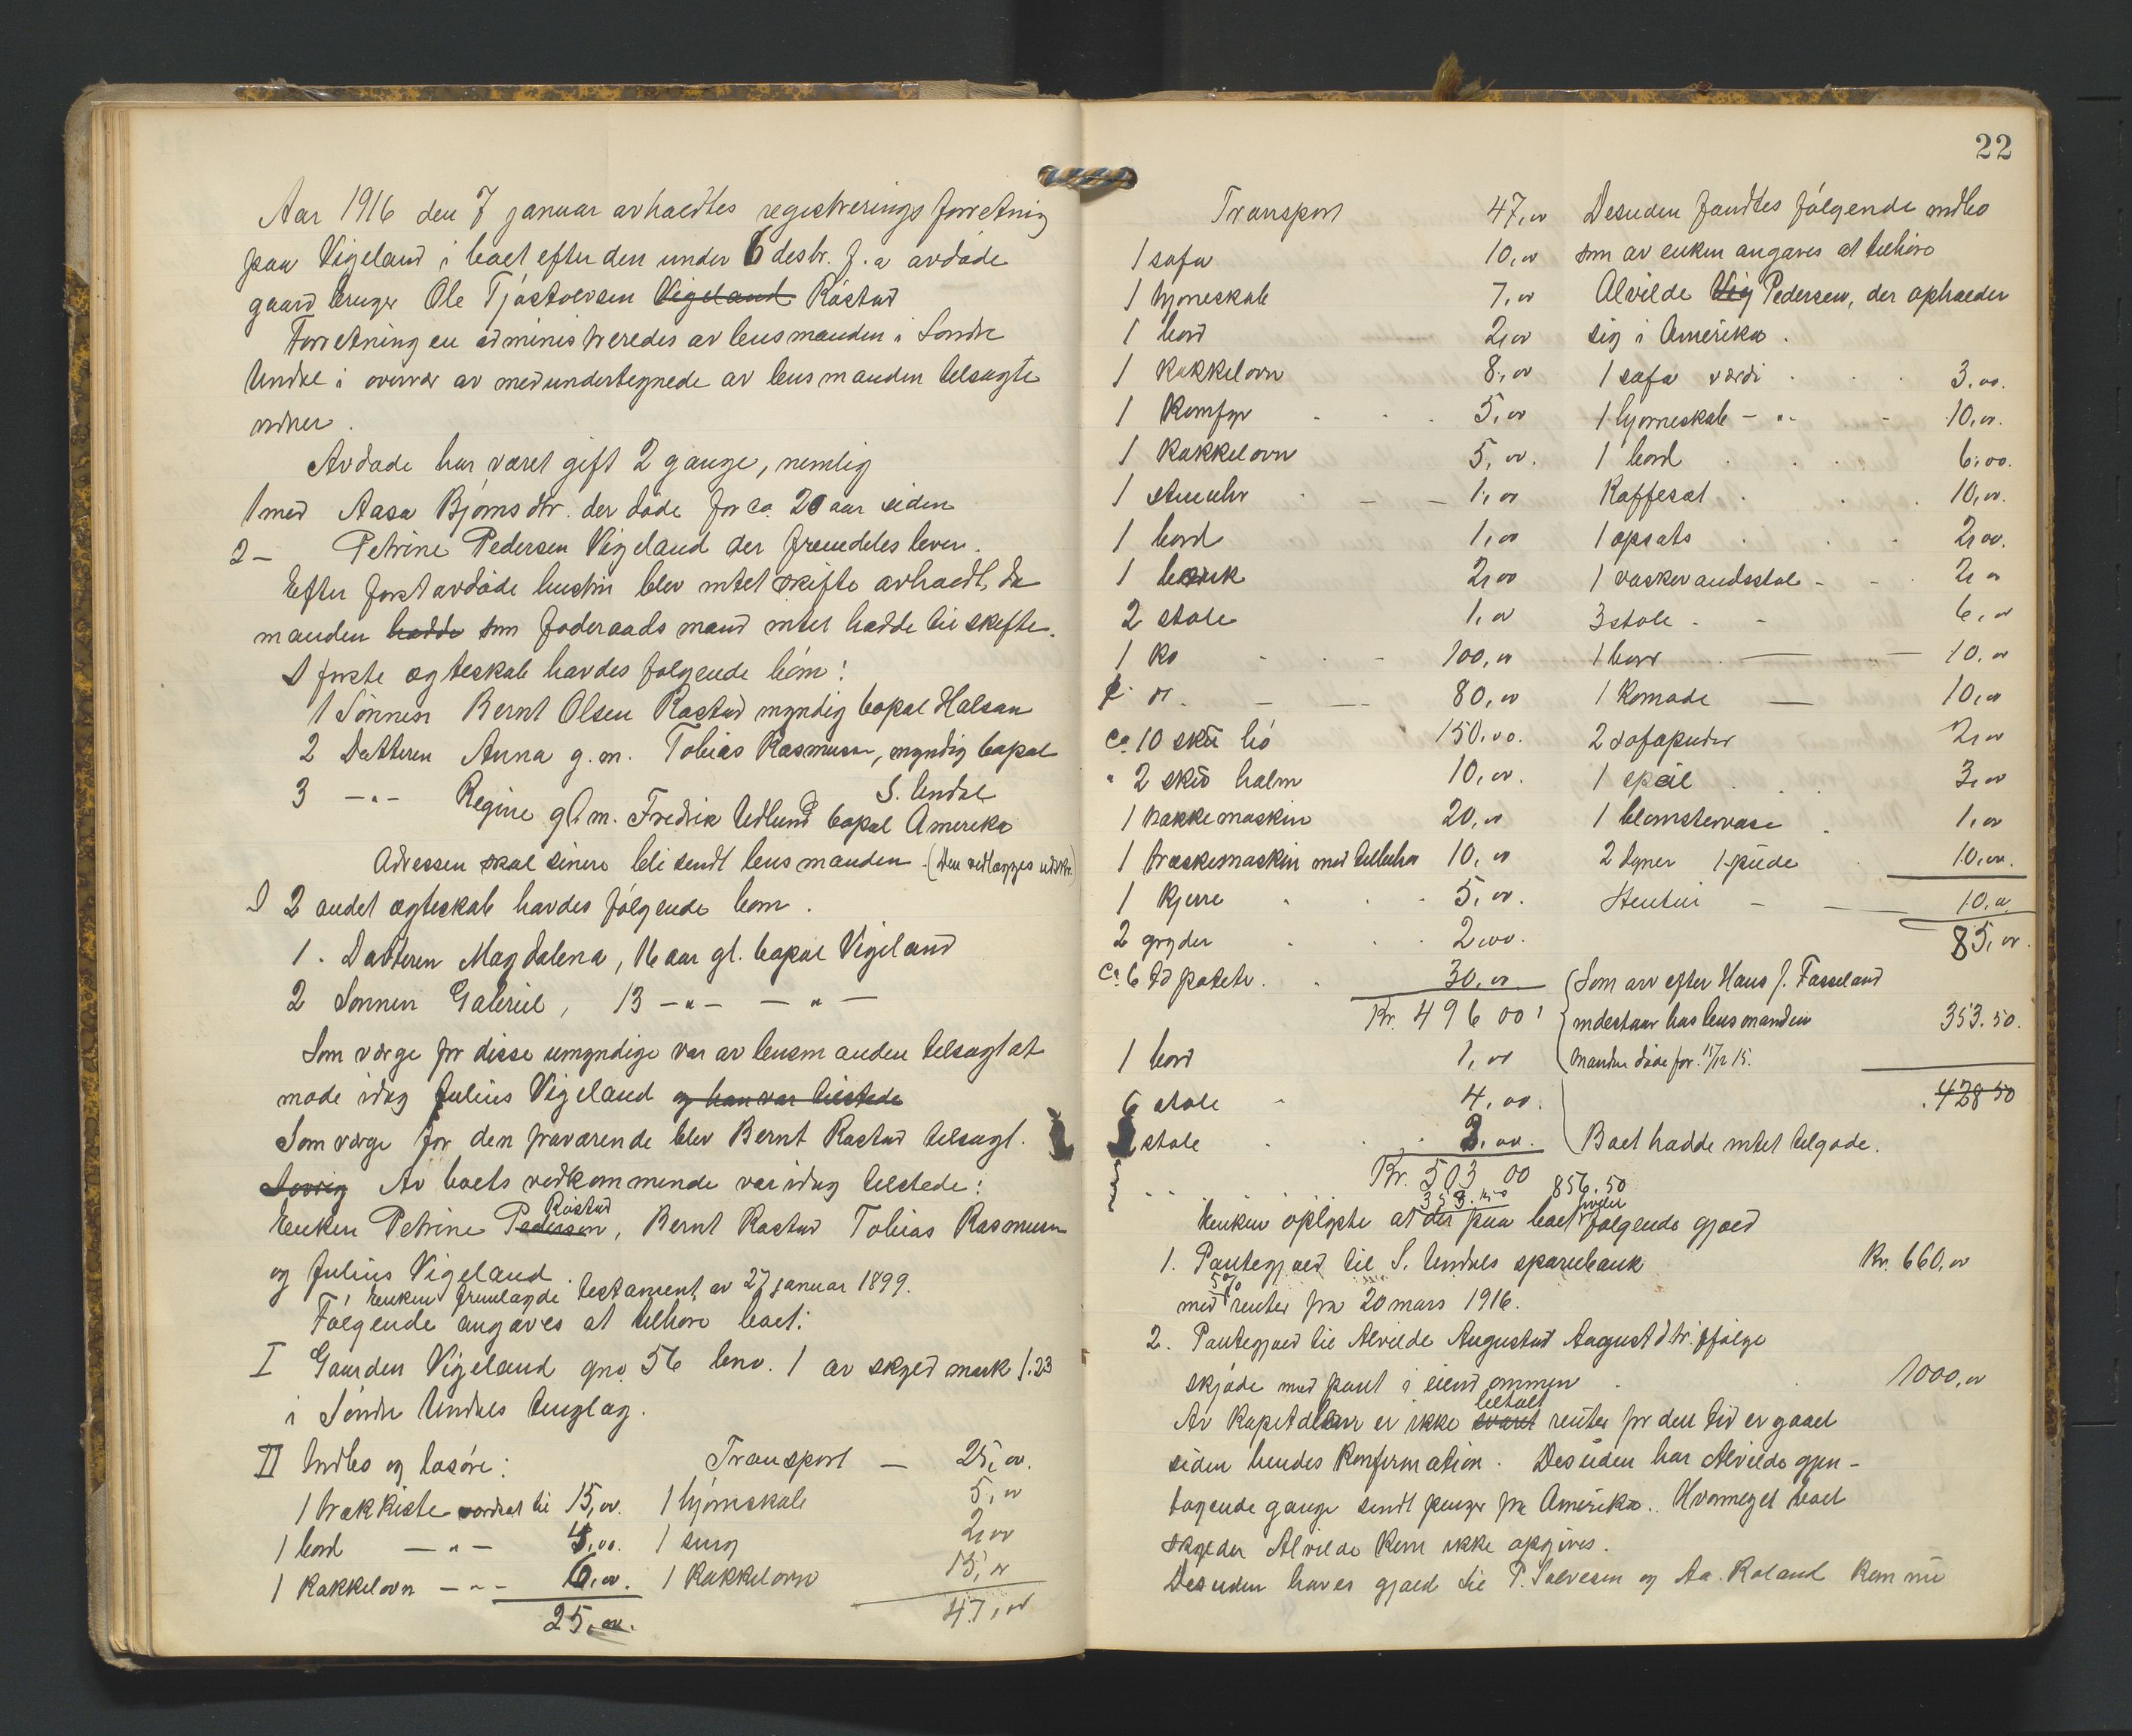 Aar 1916 den 7 januar avholdtes registreringsforretning
paa Vigeland i boet efter den under 6 desbr. f. a avdøde
gaardbruger Ole Tjøstolvsen Vigeland Råstad
Forretningen administreredes av lensmanden i Søndre
Undal i overvær av medundertegnede av lensmanden tilsagte
vidner.
Avdøde har været gift 2 gange, nemlig
1 med Aasa Bjørnsdtr. der døde for ca. 20 aar siden
2 — Petrine Pedersen Vigeland der fremdeles lever.
Efter først avdøde hustru blev intet skifte avholdt, da
manden hadde som føderaadsmand intet hadde til skifte.
I første ægteskab havdes følgende børn:
1 Sønnen Bernt Olsen Råstad myndig bopæl Halsaa
2 Datteren Anna g. m. Tobias Rasmussen, myndig bopæl
S. Undal
3 —"— Regine g. m. Fredrik Udlund bopæl Amerika
Adressen skal sinere bli sendt lensmanden. (Den vedlægges utskr.)
I 2 andet ægteskab havdes følgende børn.
1. Datteren Magdalena, 16 aar gl. bopæl Vigeland
2 Sønnen Gabriel, 13 —"— —"—
Som værge for disse umyndige var av lensmanden tilsagt at
møde idag Julius Vigeland og han var tilstede
Som værge for den fraværende blev Bernt Råstad tilsagt.
Av boets vedkommende var idag tilstede:
Råstad
Enken Petrine Pedersen, Bernt Råstad Tobias Rasmussen
og Julius Vigeland.
Enken fremlagde testament av 27 januar 1899.
Følgende angaves at tilhøre boet:
I Gaarden Vigeland gno. 56 bno. 1 av skyld mark 1.23
i Søndre Undals tinglag.
II Indbo og løsøre: Transport — 25,00.
1 trækkiste værdsat til 15,00. 1 hjørneskab 5,00
1 bord —"— 4,00. 1 seng 2,00
1 Kakkelovn —"— 6,00. 1 Kakkelovn 15,00
25,00. 47,00
22
Transport 47,00
1 sofa 10,00
1 hjørneskab 7,00
1 bord 2,00
1 Kakkelovn 8,00
1 Komfyr 5,00
1 Kakkelovn 5,00.
1 stueuhr 1,00
1 bord 1,00
1 bænk 2,00
2 stole 1,00
1 ko 100,00
1 do. 80,00
Ca 10 skd hö 150,00.
" 2 skd halm 10,00.
1 hakkemaskin 20,00
1 træskemaskin med tilbehør 10,00
1 Kjerre 5,00.
2 gryder 2,00.
Ca 6 td poteter. 30,00.
Kr. 496 00
1 bord 1,00
6 stole 4,00.
stole 2,00.
Kr. 503 00
353.50
856.50
Desuden fandtes følgende indbo
som av enken angaves at tilhøre
Alvilde Vig Pedersen, der opholder
sig i Amerika.
1 sofa værdi 3,00.
1 hjørneskab —"— 10,00.
1 bord 6,00.
Kaffesat 10,00.
1 opsats 2,00.
1 vaskevandsstol 2,00
3 stole 6,00
1 bord 10,00
1 Komode 10,00
2 sofapuder 2,00
1 speil 3,00
1 blomstervase 1,00
2 dyner 1 pude 10,00.
Stentøi 10,00
85,00.
Som arv efter Hans J. Fasseland
indestaar hos lensmanden 353.50.
Manden døde før 15/12 15.
428 50
Boet hadde intet tilgode.
Enken oplyste at der paa boet hviler følgende gjæld
1. Pantegjæld til S. Undals sparebank Kr. 660,00
med 5% renter fra 20 mars 1916.
2. Pantegjæld til Alvilde Augustad Augustdtr. ifølge
skjøde med pant i eiendommen 1000,00
betalt
Av Kapitalen er ikke svaret renter for den tid er gaaet
siden hendes Konfirmation. Desuden har Alvilde gjen-
tagende gange sendt penger fra Amerika. Hvormeget boet
skylder Alvilde Kan ikke opgives.
Desuden haves gjæld til P. Salvesen og Aa. Roland Kan nu